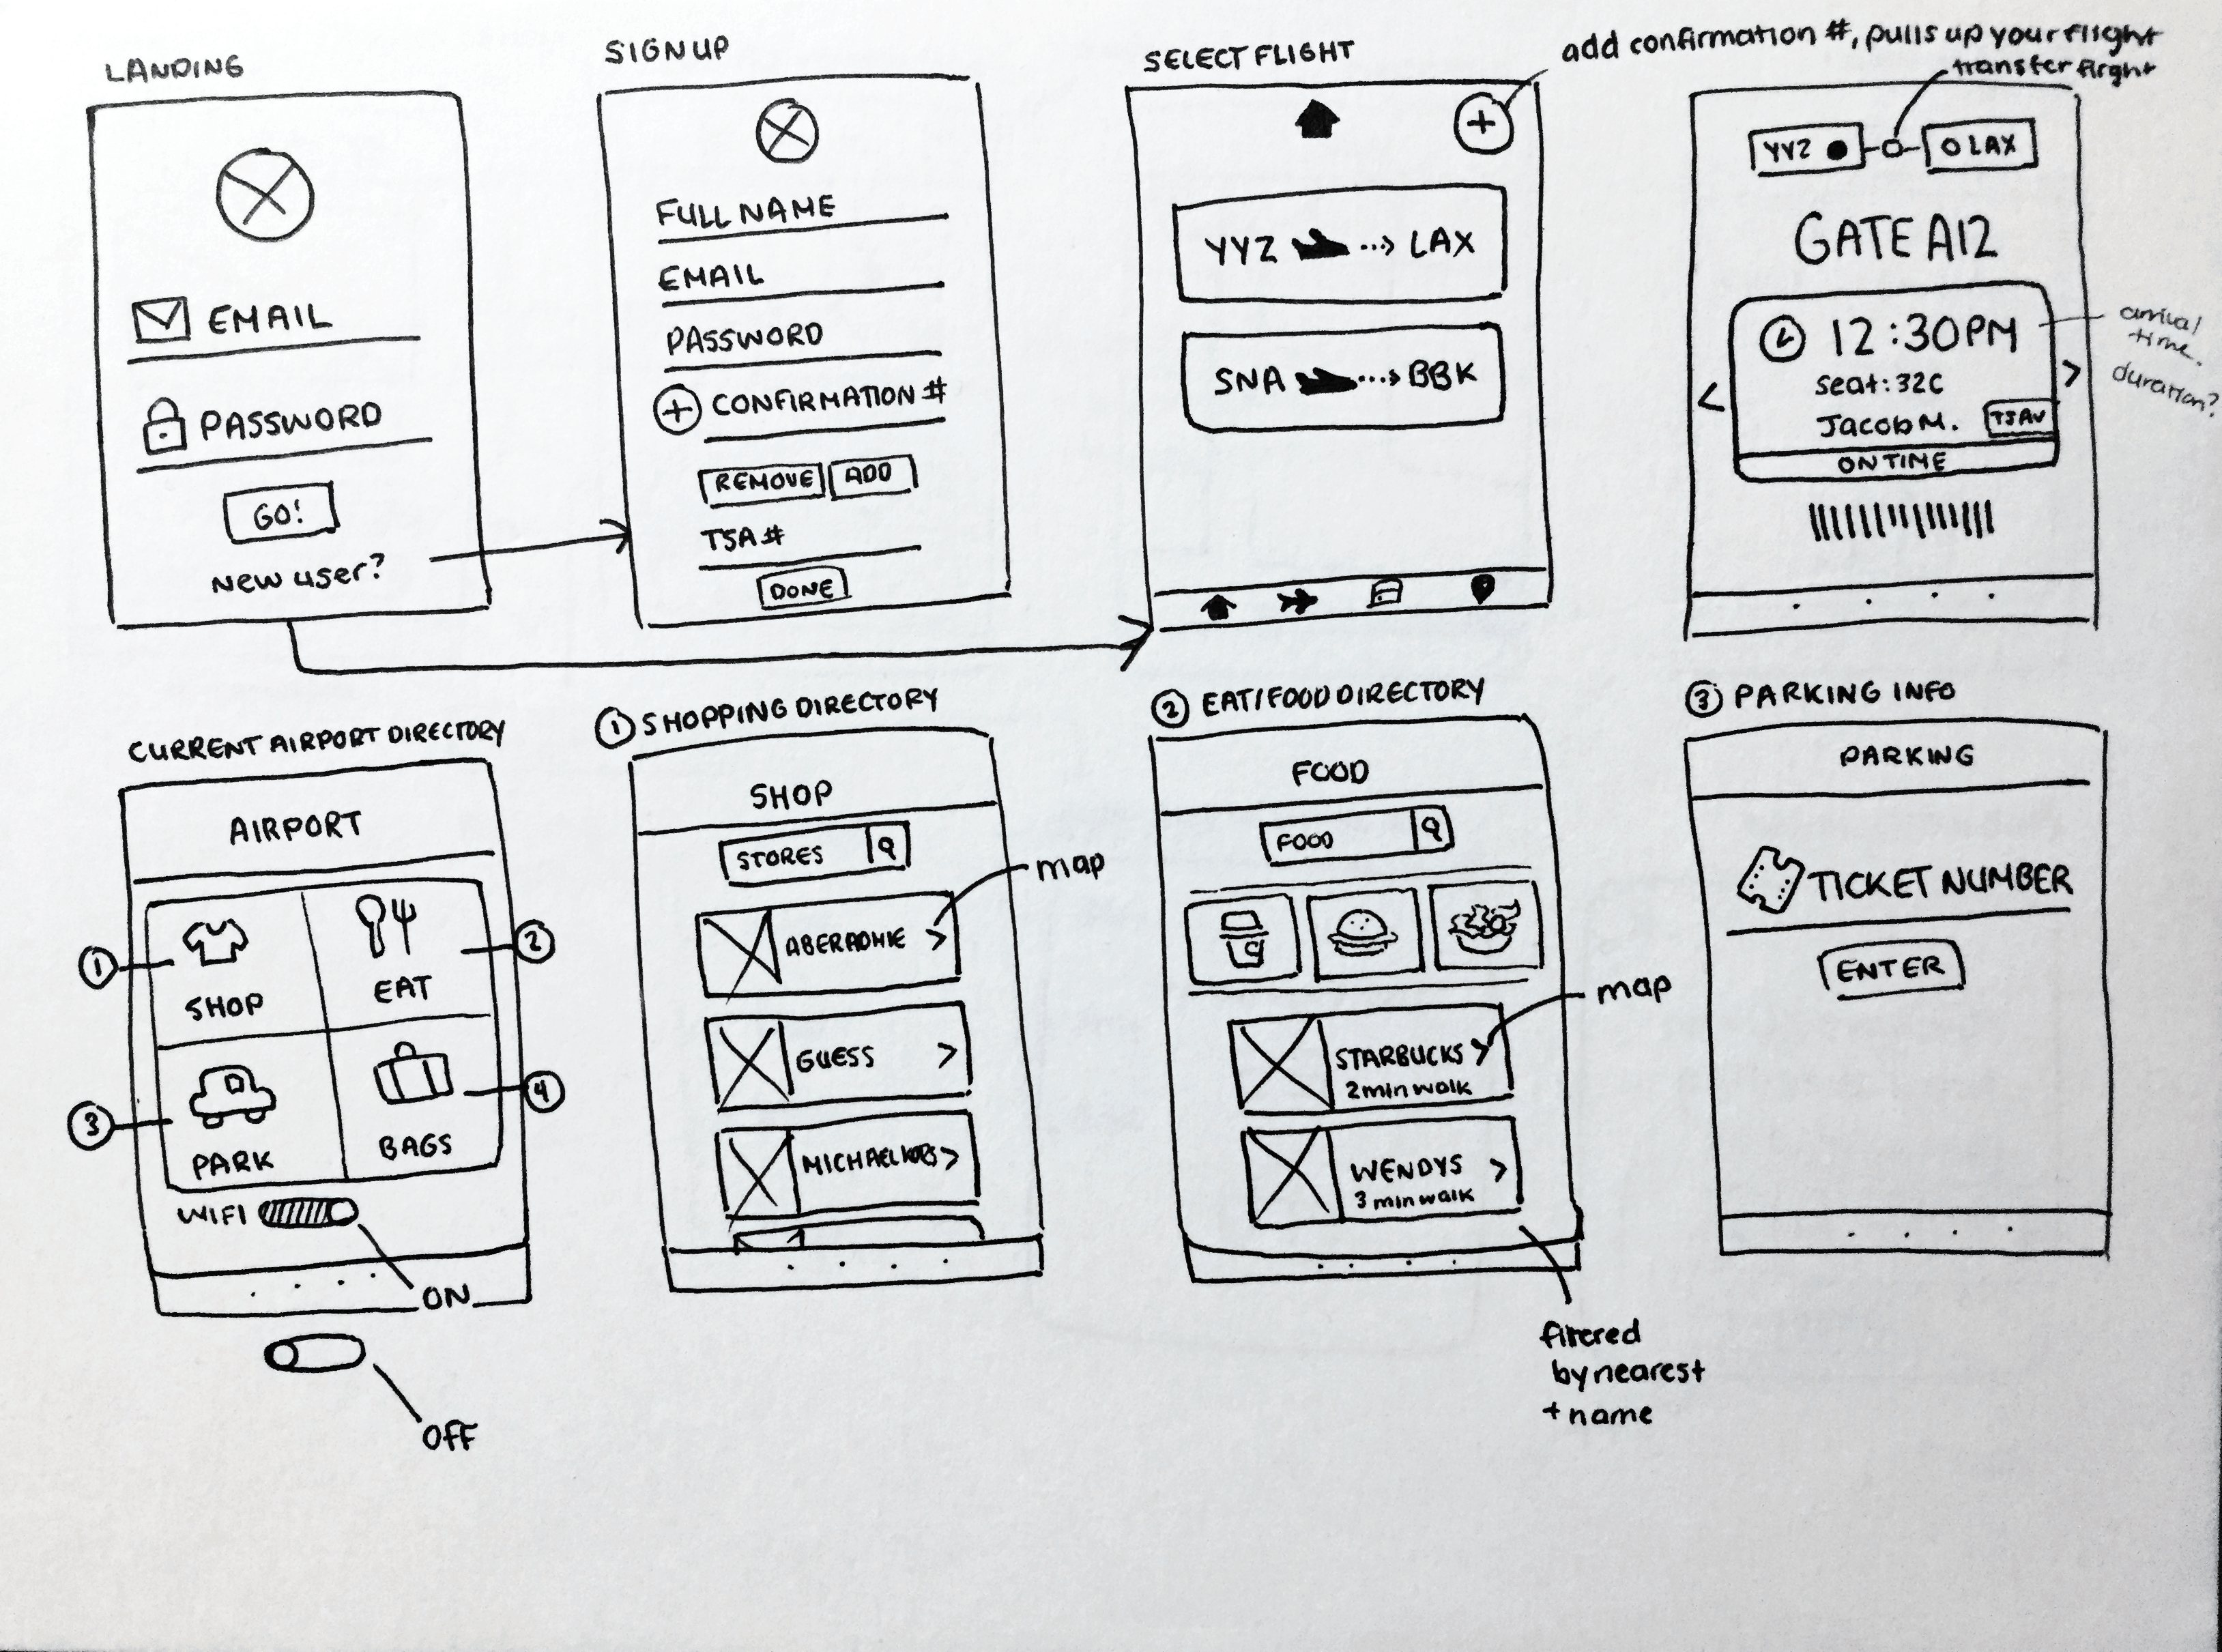 LANDING
EMAIL
PASSWORD
GO!
New user?
SIGN UP
FULL NAME
EMAIL
PASSWORD
+ CONFIRMATION #
REMOVE ADD
TSA #
DONE
SELECT FLIGHT
+
add confirmation #, pulls up your flight
YYZ ...> LAX
SNA ...> BBK
transfer flight
YYZ LAX
GATE A12
12:30PM
seat: 32C
Jacob M. TSA✓
ON TIME
< >
arrival
time.
duration?
CURRENT AIRPORT DIRECTORY
AIRPORT
1 SHOP
EAT 2
3 PARK
BAGS 4
WIFI
ON
OFF
1 SHOPPING DIRECTORY
SHOP
STORES
ABERROMIE >
map
GUESS >
MICHAEL KORS >
2 EAT/FOOD DIRECTORY
FOOD
FOOD
STARBUCKS >
2 min walk
map
WENDYS >
3 min walk
filtered
by nearest
+ name
3 PARKING INFO
PARKING
TICKET NUMBER
ENTER